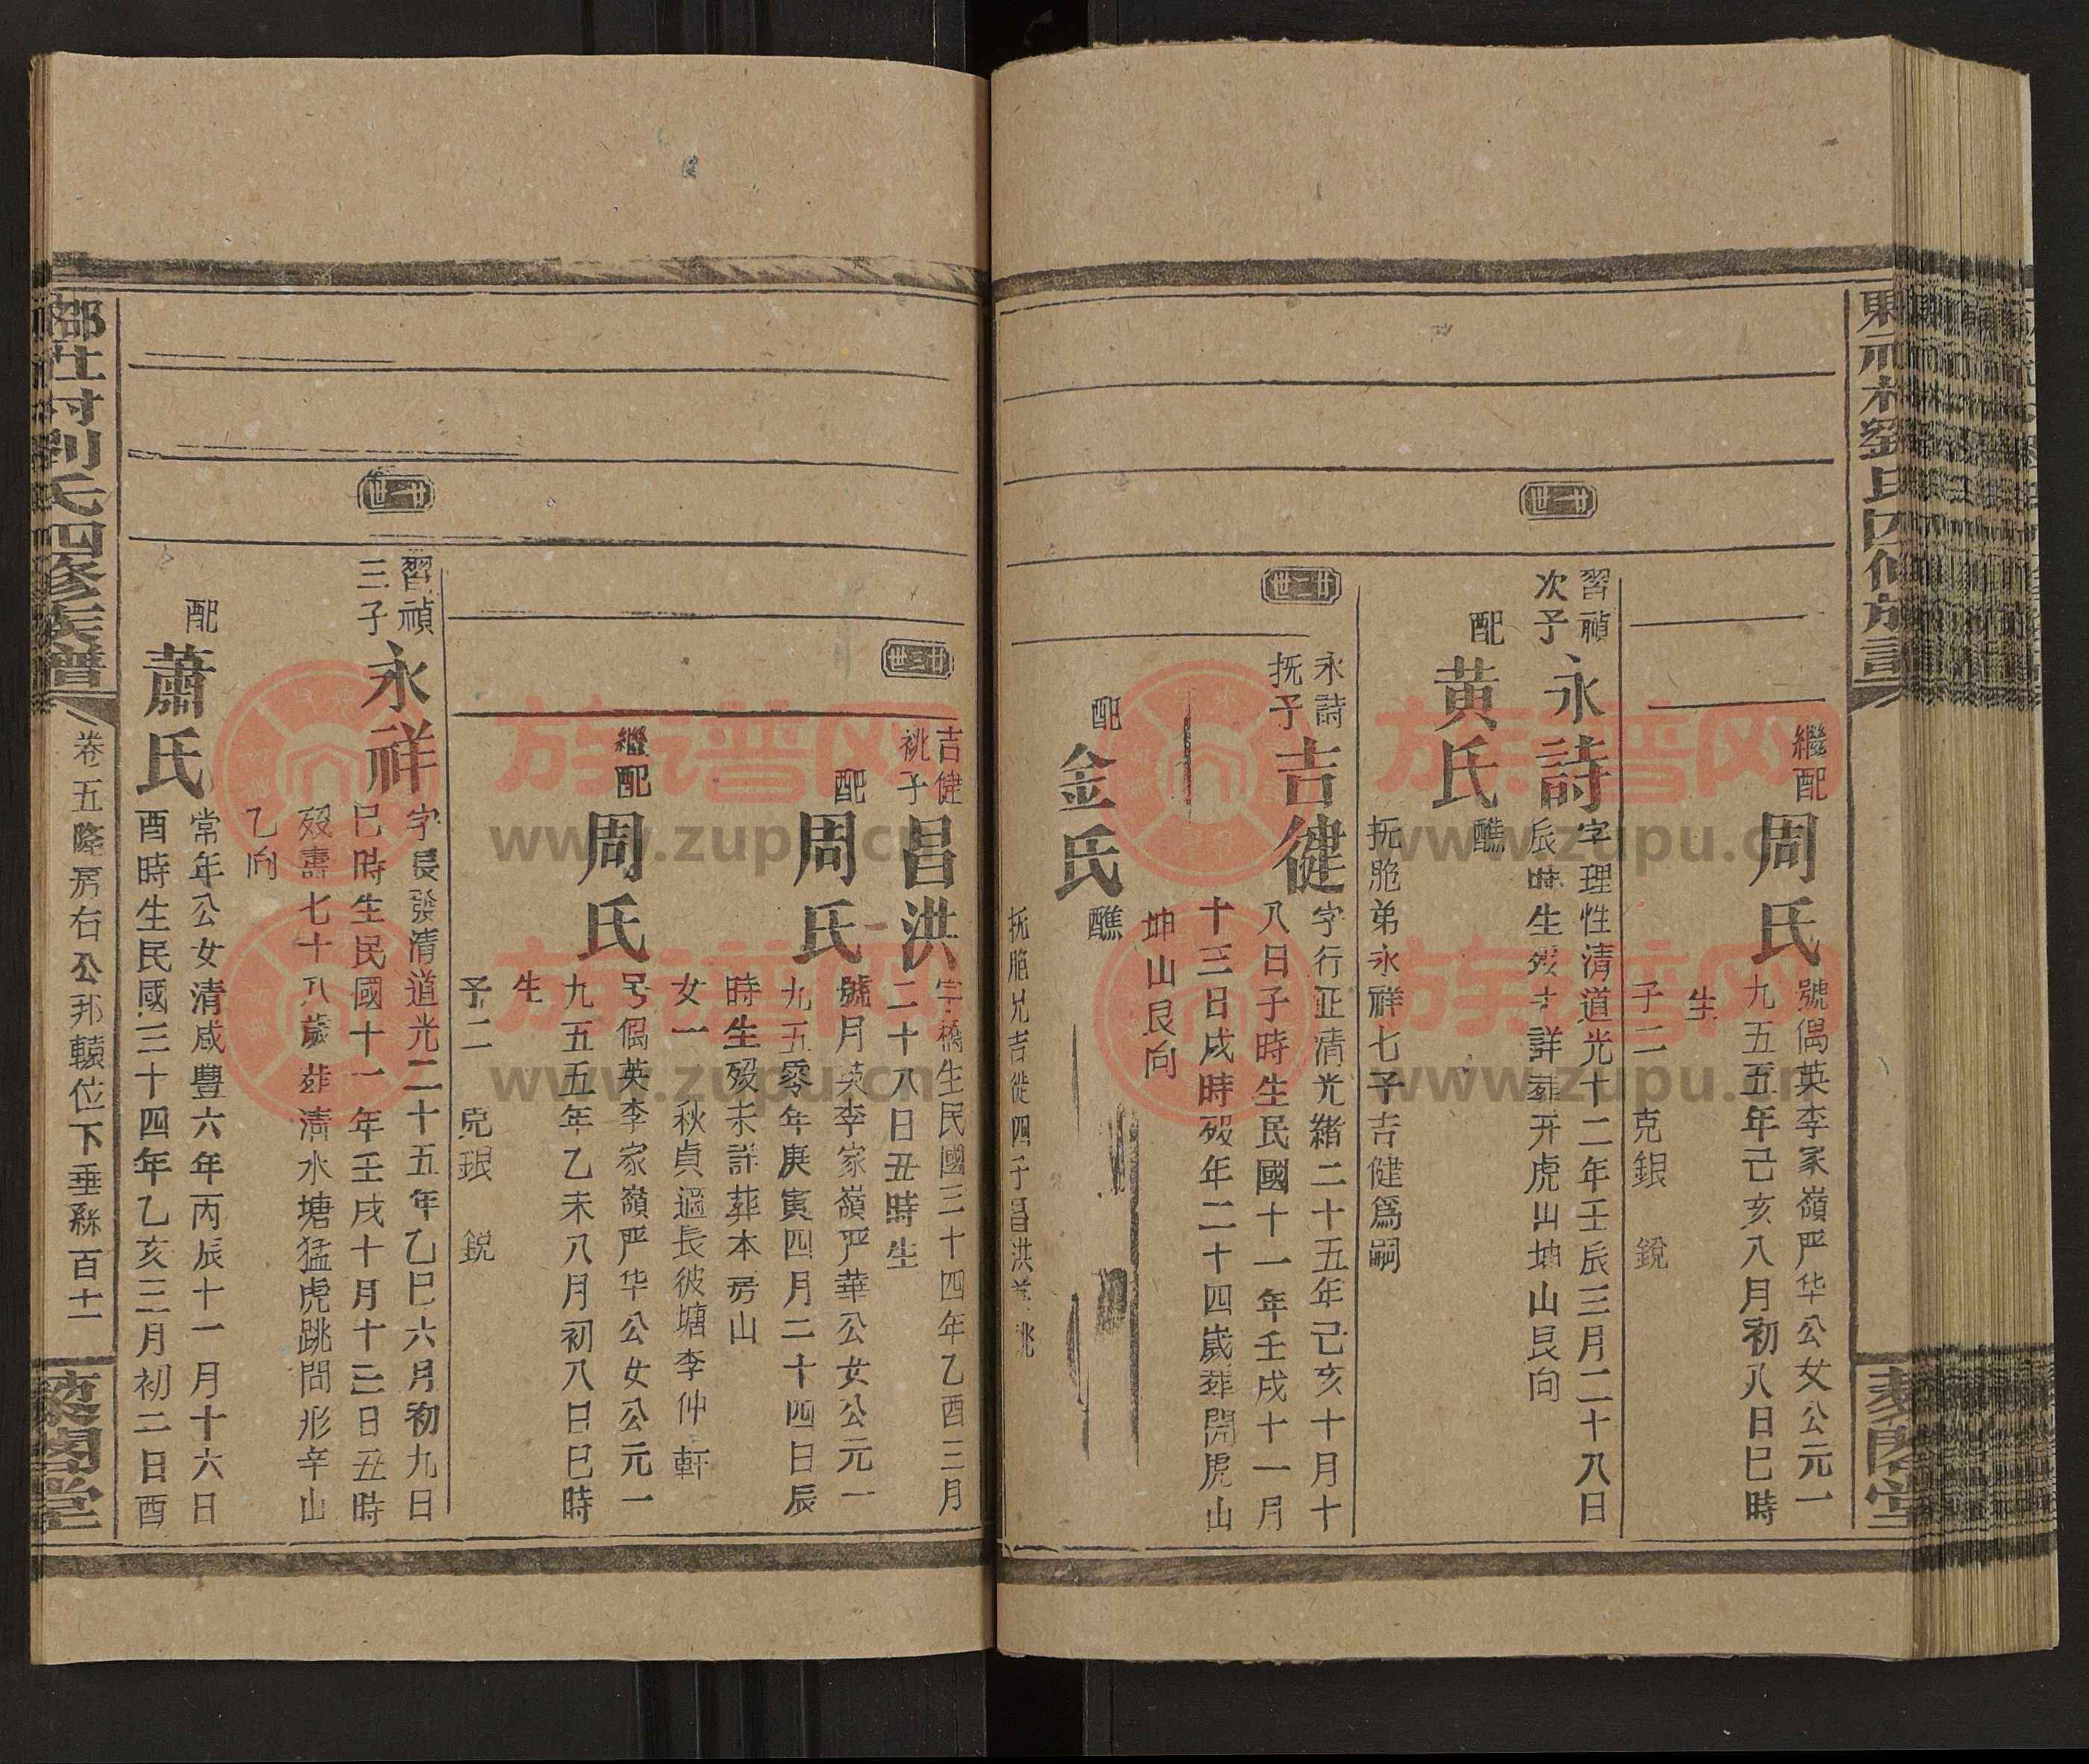 劉氏四修族譜
繼配
周氏
號偶英李家嶺严华公女公元一
九五五年己亥八月初八日巳時
生
子二 克銀 銳
廿一世
習禎
次子
永詩
字理性清道光十二年壬辰三月二十八日
辰時生歿未詳葬开虎山坤山艮向
配
黃氏
醮
抚胞弟永祥七子吉健爲嗣
廿二世
永詩
抚子
吉健
字行正清光緒二十五年己亥十月十
八日子時生民國十一年壬戌十一月
十三日戌時歿年二十四歲葬開虎山
坤山艮向
配
金氏
醮
抚胞兄吉徙四子昌洪兼祧
廿三世
吉健
祧子
昌洪
字橋生民國三十四年乙酉三月
二十八日丑時生
配
周氏
號月英李家嶺严華公女公元一
九五零年庚寅四月二十四日辰
時生歿未詳葬本房山
女一 秋貞適長彼塘李仲軒
繼配
周氏
号偶英李家嶺严华公女公元一
九五五年乙未八月初八日巳時
生
子二 克銀 銳
廿一世
習禎
三子
永祥
字長發清道光二十五年乙巳六月初九日
巳時生民國十一年壬戌十月十三日丑時
歿壽七十八歲葬清水塘猛虎跳問形辛山
乙向
配
蕭氏
常年公女清咸豐六年丙辰十一月十六日
酉時生民國三十四年乙亥三月初二日酉
社村劉氏四修族譜
卷五隆房右公邦轅位下垂絲百十一
藜閣堂
族谱网
www.zupu.cn